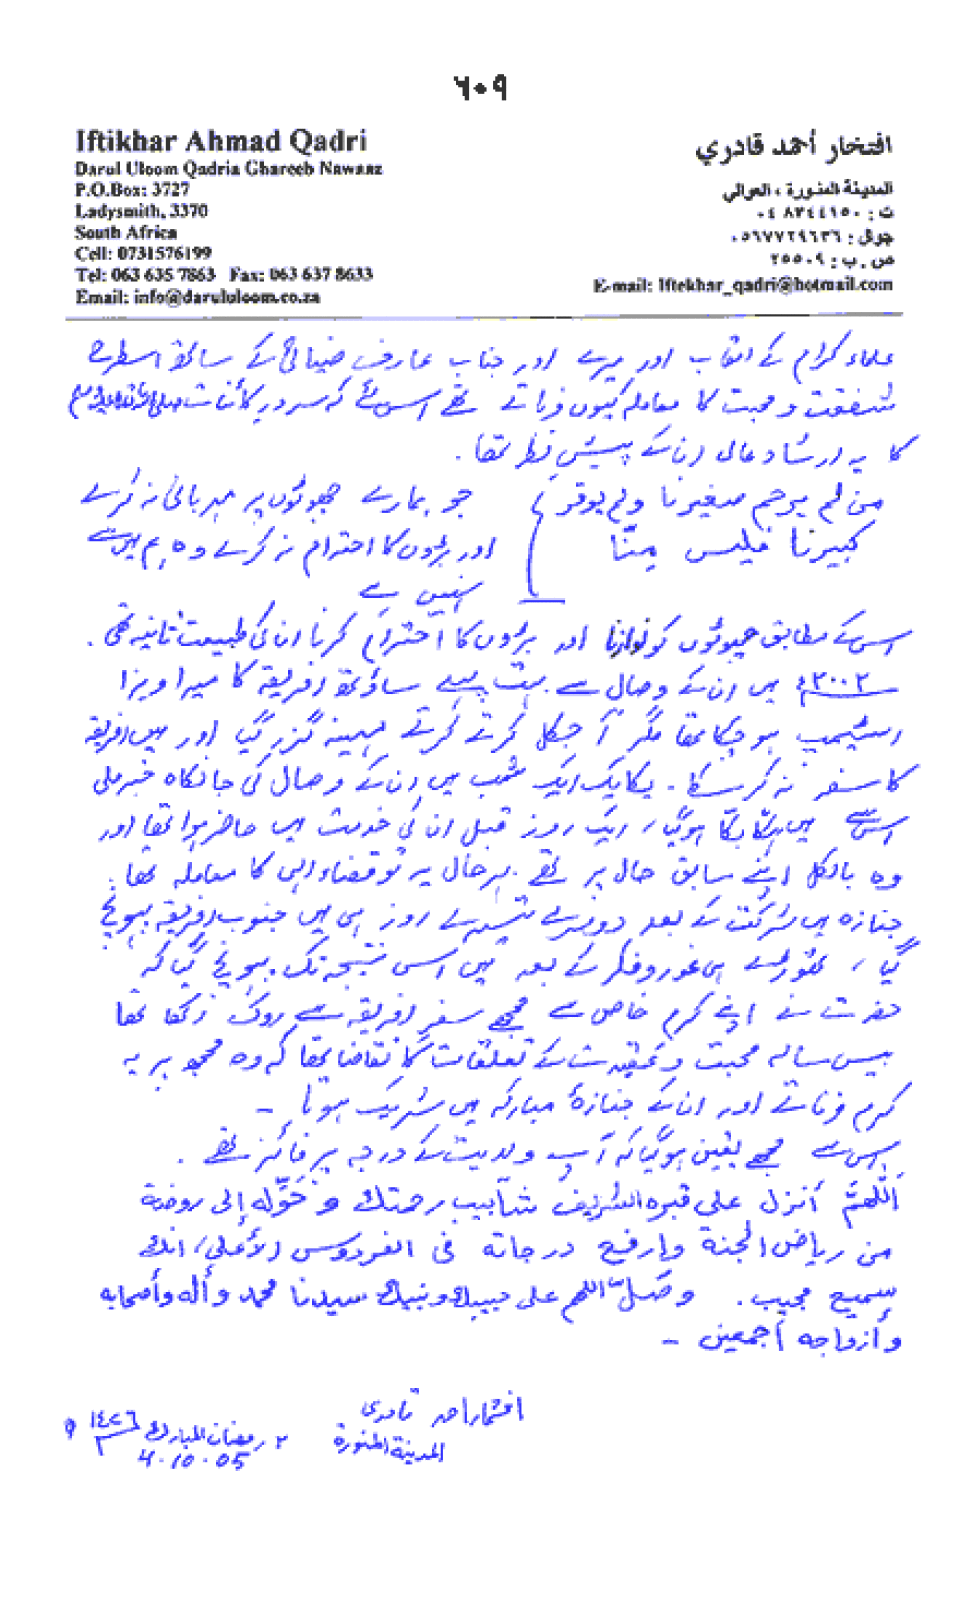 ٦٠٩
Iftikhar Ahmad Qadri
Darul Uloom Qadria Ghareeb Nawaaz
P.O.Box: 3727
Ladysmith, 3370
South Africa
Cell: 0731576199
Tel: 063 635 7863 Fax: 063 637 8633
Email: info@darululoom.co.za
افتخار أحمد قادري
المدينة المنورة ، العوالي
ت : ٠٤ ٨٢٤٤١٥٠
جوال : ٠٥٦٧٧٢٩٦٣٦
ص . ب : ٢٥٥٠٩
E-mail: Iftekhar_qadri@hotmail.com
علماء کرام کے القاب اور میرے اور جناب عارف ضیائی کے ساتھ اسطرح
شفقت و محبت کا معاملہ کیوں فرماتے تھے اسلئے کہ سرور کائنات صلی اللہ علیہ وسلم
کا یہ ارشاد عالی ان کے پیش نظر تھا .
من لم يرحم صغيرنا ولم يوقر
كبيرنا فليس منّا
جو ہمارے چھوٹوں پر مہربانی نہ کرے
اور بڑوں کا احترام نہ کرے وہ ہم میں سے
نہیں ہے
اس کے مطابق چھوٹوں کو نوازنا اور بڑوں کا احترام کرنا ان کی طبیعت ثانیہ تھی .
٢٠٠٢ء میں ان کے وصال سے بہت پہلے ساؤتھ افریقہ کا میرا ویزا
اسٹیمپ ہو چکا تھا مگر آجکل کرتے کرتے مہینہ گزر گیا اور میں افریقہ
کا سفر نہ کر سکا . یکایک ایک شب میں ان کے وصال کی جانکاہ خبر ملی
اس سے میں ہکا بکا ہوگیا ، ایک روز قبل ان کی خدمت میں حاضر ہوا تھا اور
وہ بالکل اپنے سابق حال پر تھے . بہرحال یہ تو قضاء الہی کا معاملہ تھا .
جنازہ میں شرکت کے بعد دوسرے تیسرے روز ہی میں جنوب افریقہ پہونچ
گیا ، تھوڑے ہی غور و فکر کے بعد میں اس نتیجہ تک پہونچ گیا کہ
حضرت نے اپنے کرم خاص سے مجھے سفر افریقہ سے روک رکھا تھا
بیس سالہ محبت و عقیدت کے تعلقات کا تقاضا تھا کہ وہ مجھ پر یہ
کرم فرماتے اور ان کے جنازۂ مبارکہ میں شریک ہوتا -
اس سے مجھے یقین ہوگیا کہ آپ ولایت کے درجہ پر فائز تھے .
اللّهمّ أنزل على قبره الشريف شآبيب رحمتك و حَوِّله إلى روضة
من رياض الجنة وارفع درجاته في الفردوس الأعلى، انك
سميع مجيب . وصلّ اللهم على حبيبك ونبيك سيدنا محمد وآله وأصحابه
وأزواجه أجمعين -
افتخار احمد قادری
المدينة المنورة
٢ رمضان المبارك ١٤٢٦ ھ
4.10.05